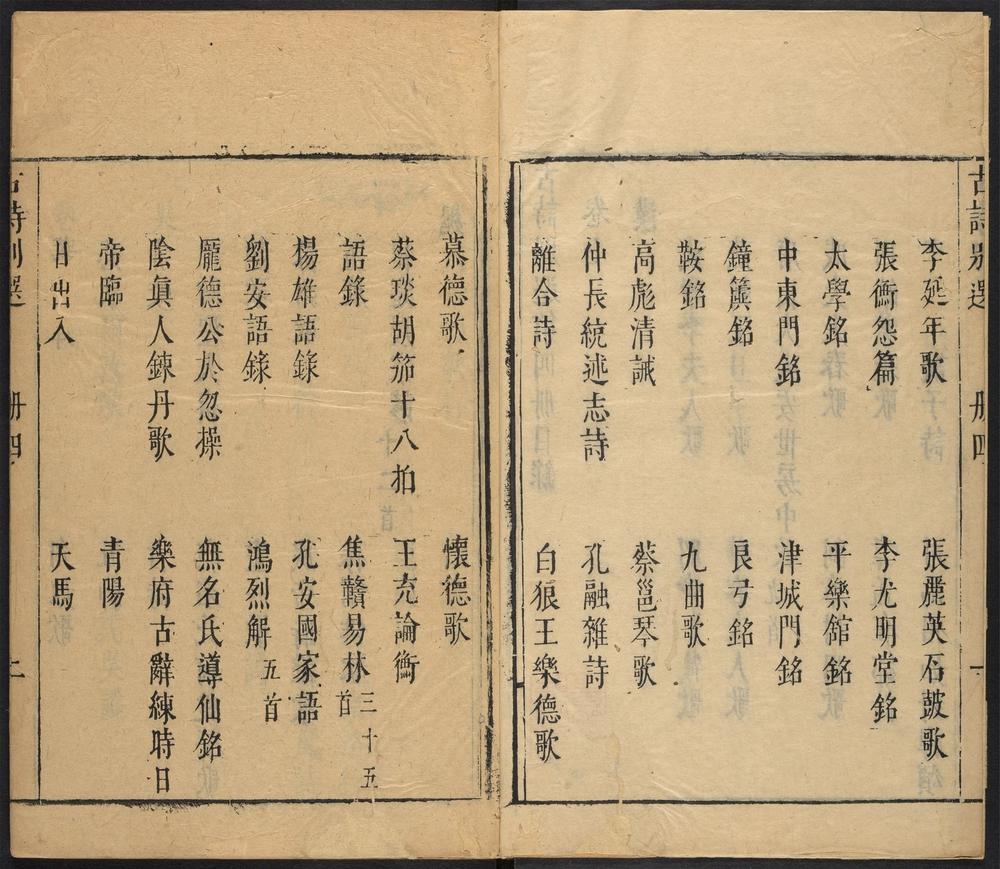 古詩別選 冊四
李延年歌 張麗英石鼓歌
張衝怨篇 李尤明堂銘
太學銘 平樂舘銘
中東門銘 津城門銘
鐘簴銘 良弓銘
鞍銘 九曲歌
高彪清誡 蔡邕琴歌
仲長統述志詩 孔融雜詩
離合詩 白狼王樂德歌
慕德歌 懷德歌
蔡琰胡笳十八拍 王充論衡
語錄 焦贛易林三十五首
楊雄語錄 孔安國家語
劉安語錄 鴻烈解五首
龐德公於忽操 無名氏導仙銘
陰眞人鍊丹歌 樂府古辭練時日
帝臨 青陽
日出入 天馬
古詩別選 冊四 二